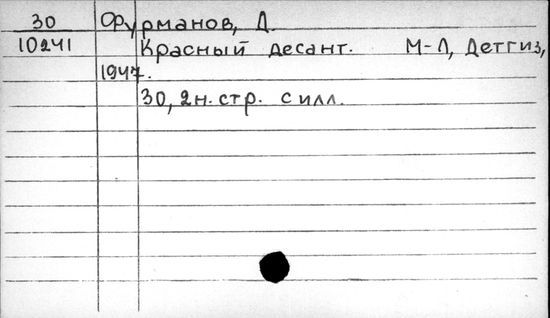 30 Фурманов, Д.
10241 Красный десант. М-Л, Детгиз,
1947.
30, 2н. стр. с илл.